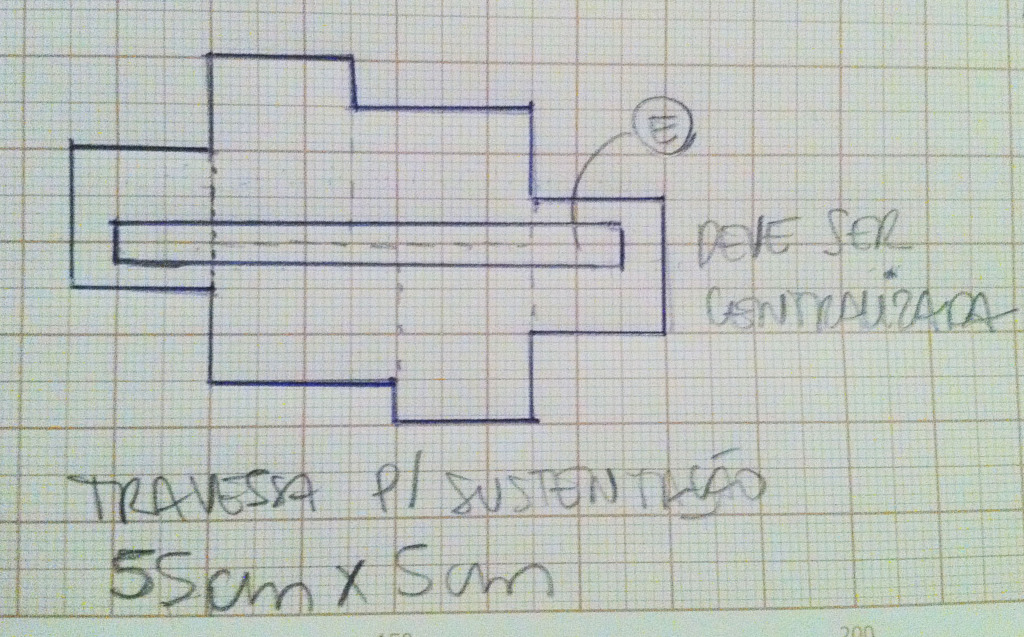 E
DEVE SER
CENTRALIZADA
TRAVESSA P/ SUSTENTAÇÃO
55cm x 5cm
150
200